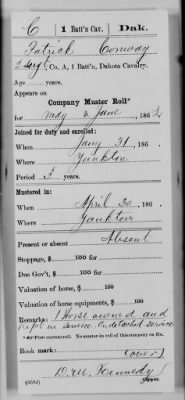 C 1 Batt'n Cav. Dak.
Patrick Conway
2 Sergt, Co. A, 1 Batt'n, Dakota Cavalry.
Age years.
Appears on
Company Muster Roll*
for May & June, 1862
Joined for duty and enrolled:
When Jany 31, 186
Where Yankton
Period 3 years.
Mustered in:
When April 30, 186
Where Yankton
Present or absent Absent
Stoppage, $ 100 for
Due Gov't, $ 100 for
Valuation of horse, $ 100
Valuation of horse equipments, $ 100
Remarks: 1 Horse owned and
kept in service. On detached service
Book mark:
(over)
D M Kennedy
(358d) Copyist.